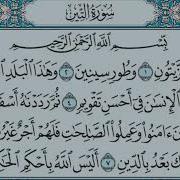 سُورَةُ التِّينِ
بِسْمِ اللَّهِ الرَّحْمَٰنِ الرَّحِيمِ
يْتُونِ ١ وَطُورِ سِينِينَ ٢ وَهَٰذَا الْبَلَدِ
الْإِنسَانَ فِي أَحْسَنِ تَقْوِيمٍ ٤ ثُمَّ رَدَدْنَاهُ أَسْفَ
ءَامَنُوا وَعَمِلُوا الصَّالِحَاتِ فَلَهُمْ أَجْرٌ غَيْرُ
كَ بَعْدُ بِالدِّينِ ٧ أَلَيْسَ اللَّهُ بِأَحْكَمِ الْحَ